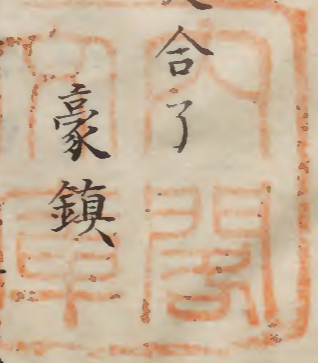 合了
豪鎮
内閣
文庫